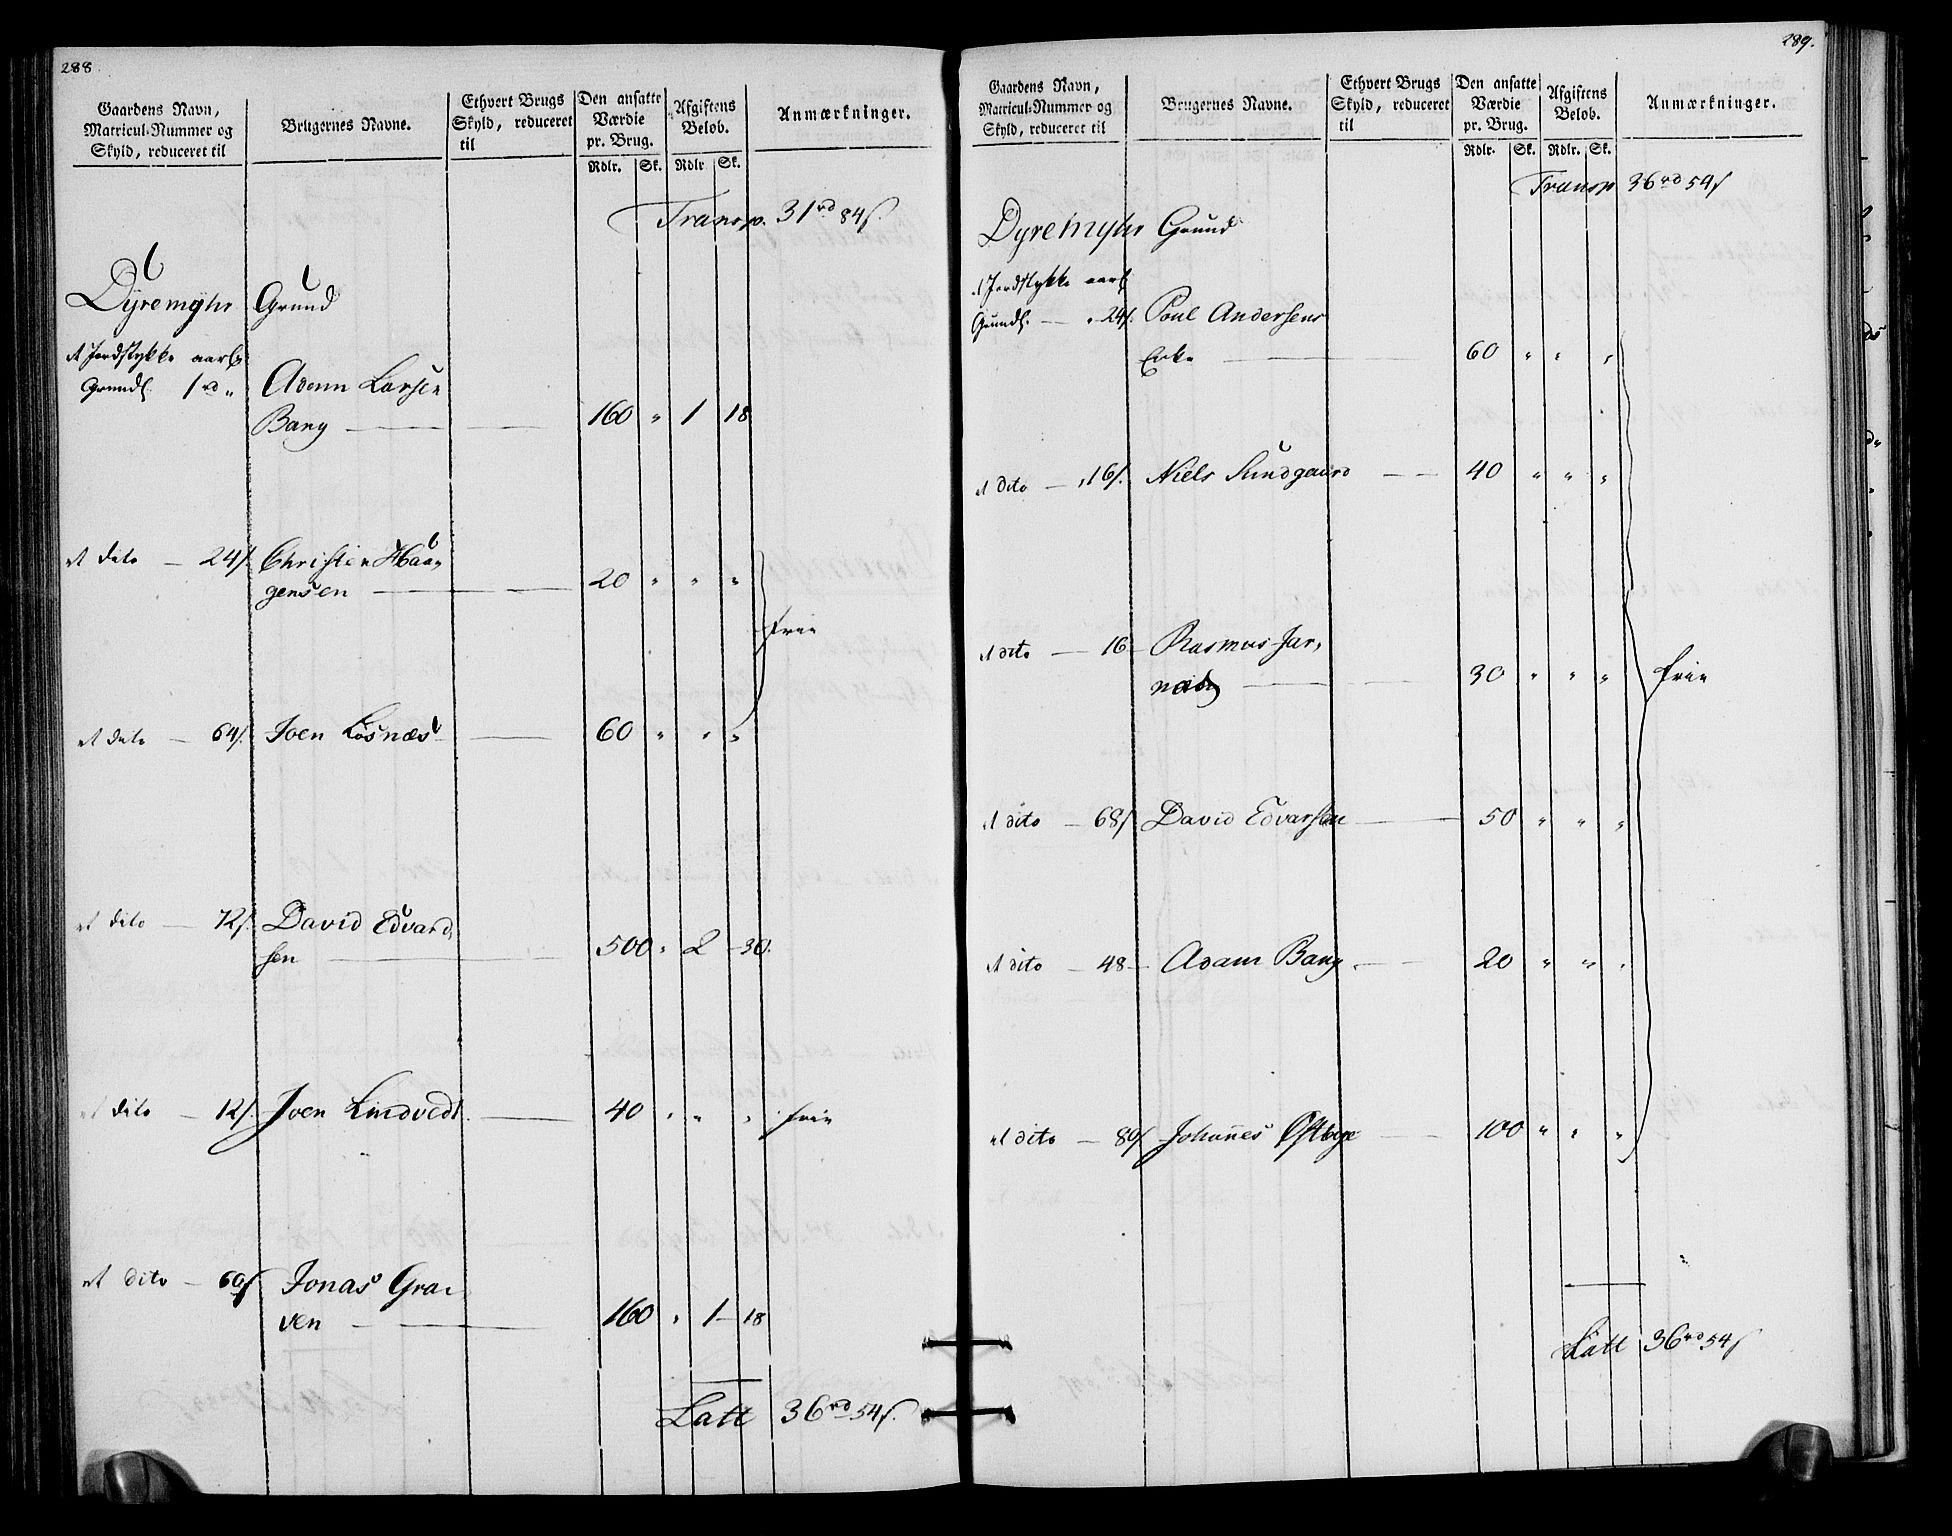 288
Gaardens Navn, Matricul-Nummer og Skyld, reduceret til
Brugernes Navne.
Ethvert Brugs Skyld, reduceret til
Den ansatte Værdie pr. Brug.
Afgiftens Belob.
Anmærkninger.
Rdlr. Sk. Rdlr. Sk.
Transp. 31 rd 84 s.
Dyremyhr Grund
et Jordstykke aarl.
Grundl. 1 rd " Adam Larsen
Bang — 160 " 1 18
et dito — 24 s. Christen Haa,
gensen — 20 " " "
frie
et dito — 64 s. Joen Løsnæs — 60 " " "
et dito — 72 s. David Edvard,
sen — 500 " 2 30.
et dito — 12 s. Joen Lindvedt — 40 " " " frie
et dito — 60 s. Jonas Gra,
ven — 160 " 1 18
Latt 36 rd 54 s.
289.
Gaardens Navn, Matricul-Nummer og Skyld, reduceret til
Brugernes Navne.
Ethvert Brugs Skyld, reduceret til
Den ansatte Værdie pr. Brug.
Afgiftens Belob.
Anmærkninger.
Rdlr. Sk. Rdlr. Sk.
Transp 36 rd 54 s
Dyremyhr Grund
et Jordstykke aarl.
Grundl. — " 24 s. Poul Andersens
Enke — 60 " " "
et dito — " 16 s. Niels Sundgaard — 40 " " "
et dito — 16 — Rasmus Jar,
— 30 " " " frie
et dito — 68 s David Edvarsen — 50 " " "
et dito — 48 — Adam Bang — 20 " " "
et dito — 80 s Johannes — 100 " " "
Latt 36 rd 54 s